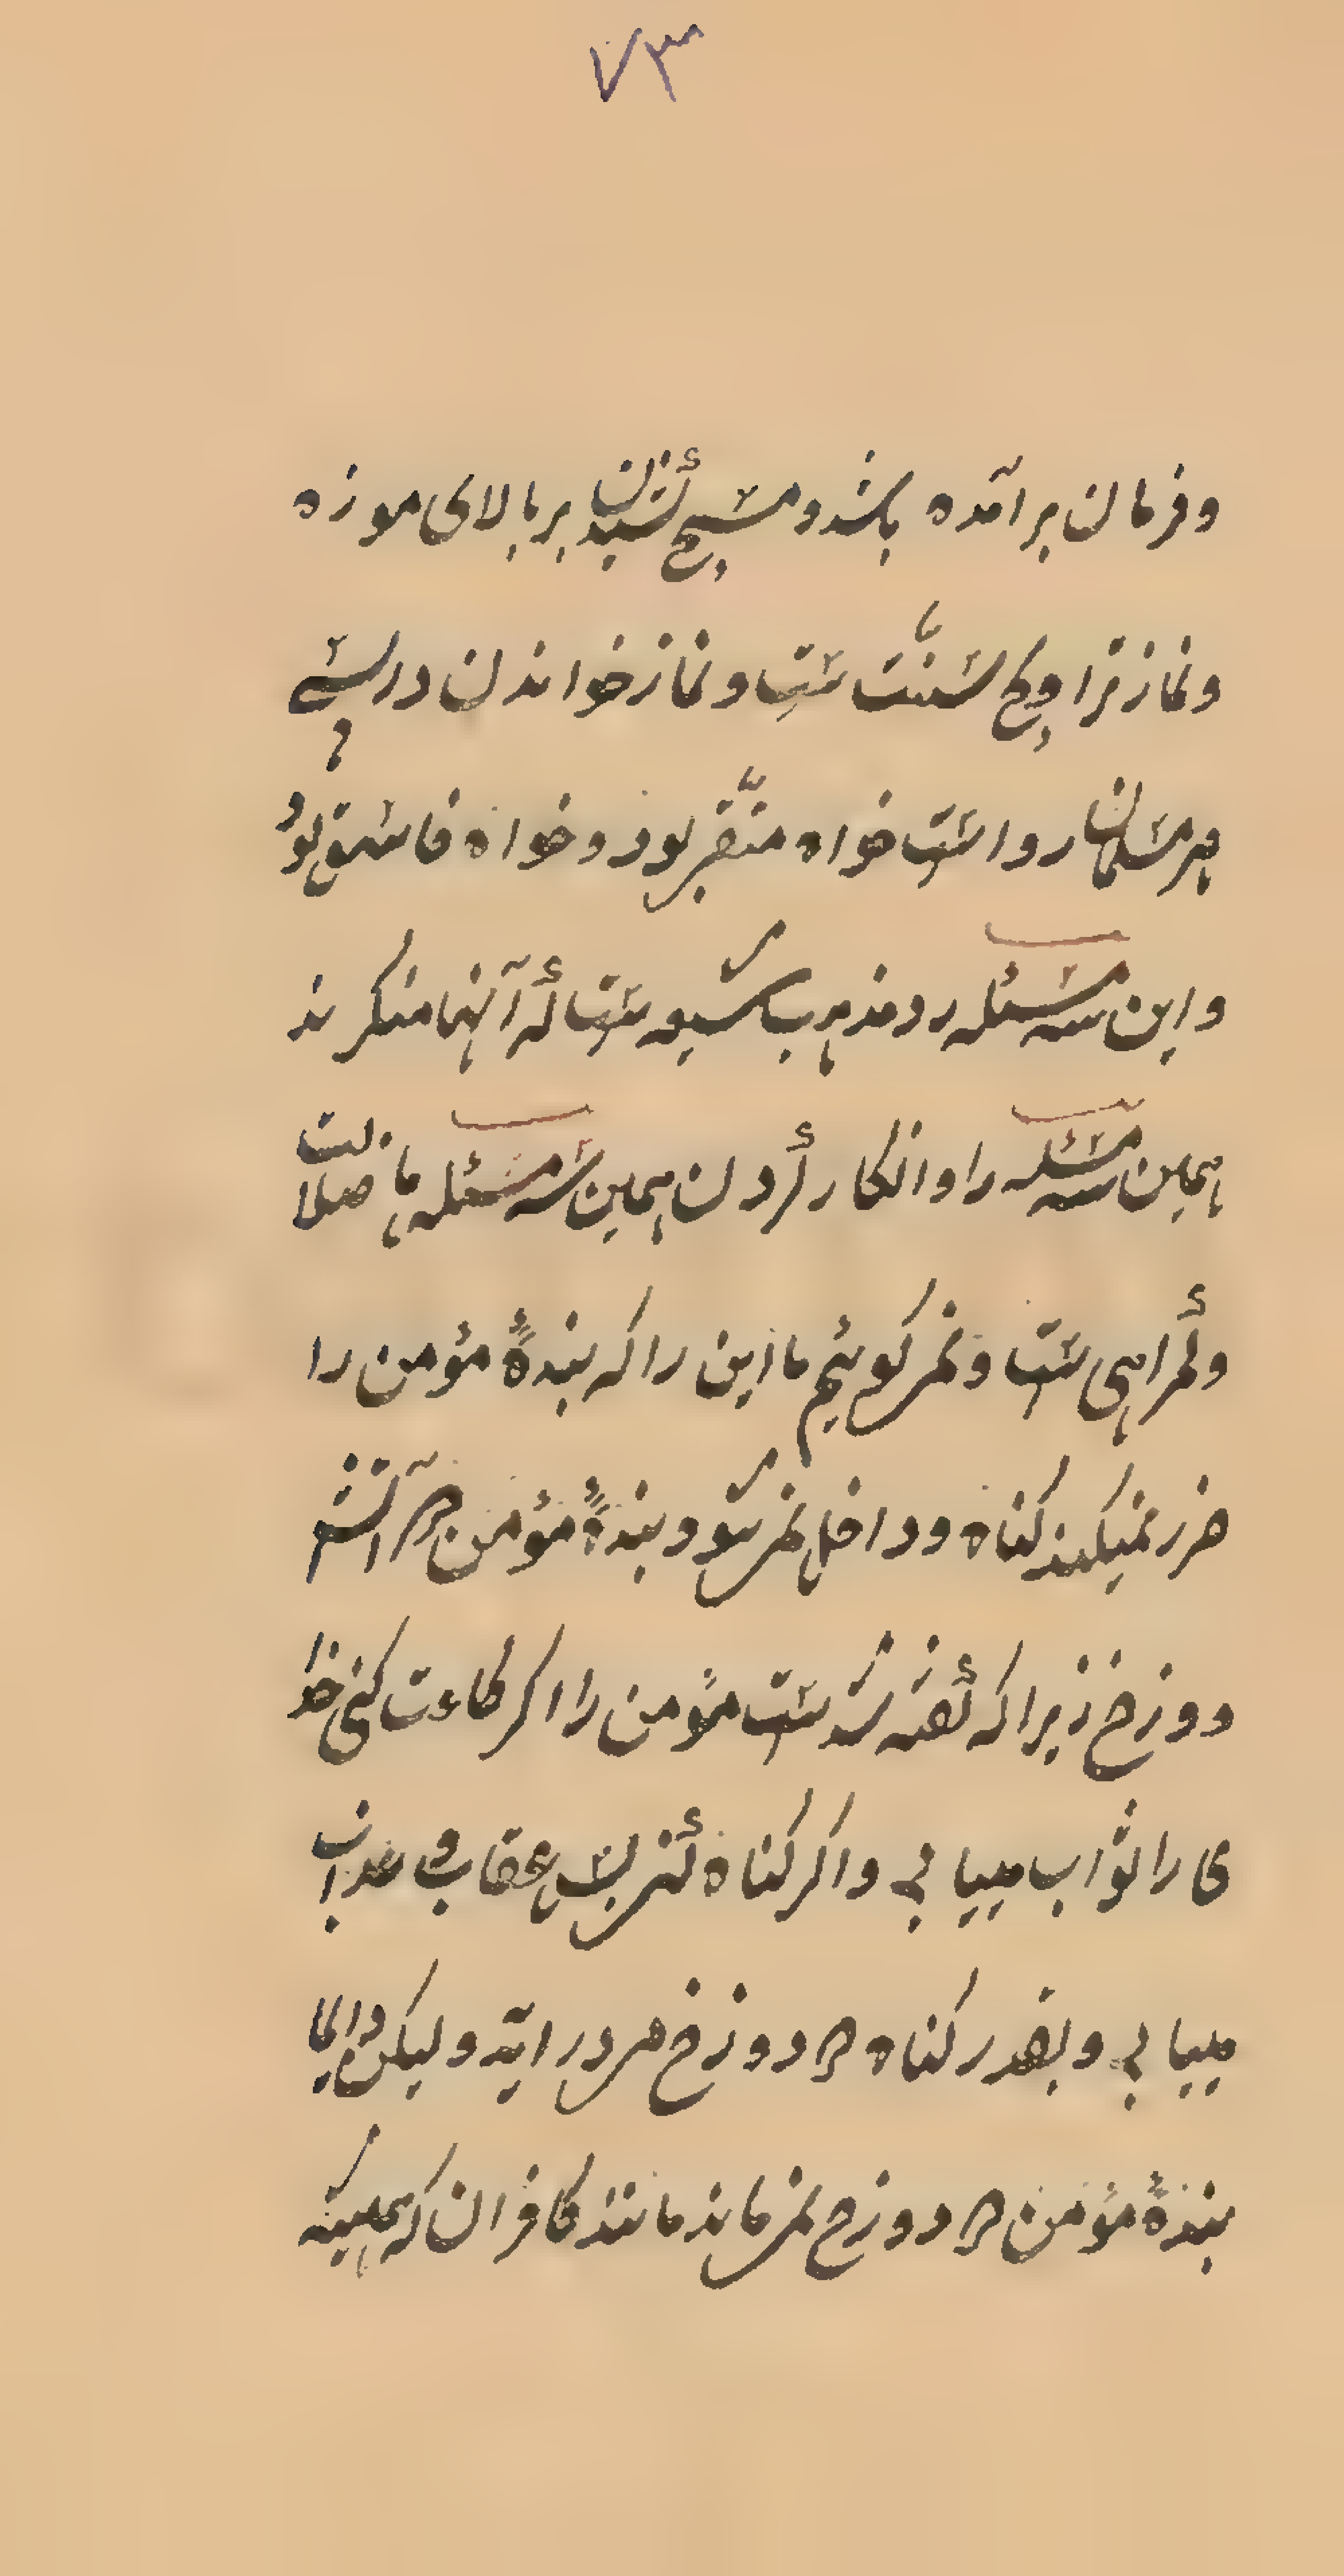 ۷۳
وفرمان برآمده باشد و مسح کشیدن بر بالای موزه
ونماز تراویح سنّت ست ونماز خواندن در پسی
هر مسلمان رواست خواه متّقی بود و خواه فاسق بود
واین سه مسئله رد مذهب شیعه ست که آنها منکرند
همین سه مسئله را وانکار کردن همین سه مسئله ها ضلالت
وکمراهی ست ونمی کوئیم ما این را که بندهٔ مؤمن را
ضرر نمیکند کناه وداخل نمی شود بندهٔ مؤمن در آتش
دوزخ زیرا که کفته شد ست مؤمن را اکر طاعت کنی خدا
ی را ثواب میيابی واکر کناه کنی پس عقاب و عذاب
میيابی وبقدر کناه در دوزخ می درايد وليکن دائما
بندهٔ مؤمن در دوزخ نمی ماند مانند کافران که همیشه